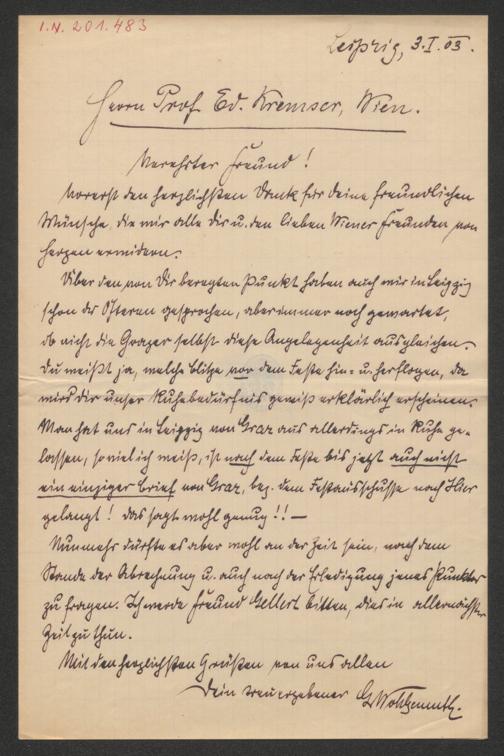 I.N. 201.483
Leipzig, 3.I.03.
Herrn Prof. Ed. Kremser, Wien.
Verehrter Freund!
Vorerst den herzlichsten Dank für deine freundlichen
Wünsche, die wir alle Dir u. den lieben Wiener Freunden von
Herzen erwidern.
Über den von Dir beregten Punkt haben auch wir in Leipzig
schon des Öfteren gesprochen, aber immer noch gewartet,
ob nicht die Grazer selbst diese Angelegenheit ausgleichen.
Du weißt ja, welche Blitze vor dem Feste hin- u. herflogen, da
wird dir unser Ruhebedürfnis gewiß erklärlich erscheinen.
Man hat uns in Leipzig von Graz aus allerdings in Ruhe ge-
lassen, soviel ich weiß, ist nach dem Feste bis jetzt auch nicht
ein einziger Brief von Graz, bez. dem Festausschusse nach Hier
gelangt! Das sagt wohl genug!! —
Nunmehr dürfte es aber wohl an der Zeit sein, nach dem
Stande der Abrechnung u. auch nach der Erledigung jenes Punktes
zu fragen. Ich werde Freund Gellert bitten, dies in allernächster
Zeit zu thun.
Mit den herzlichsten Grüßen von uns allen
Dein treuergebener G. Wohlgemuth.